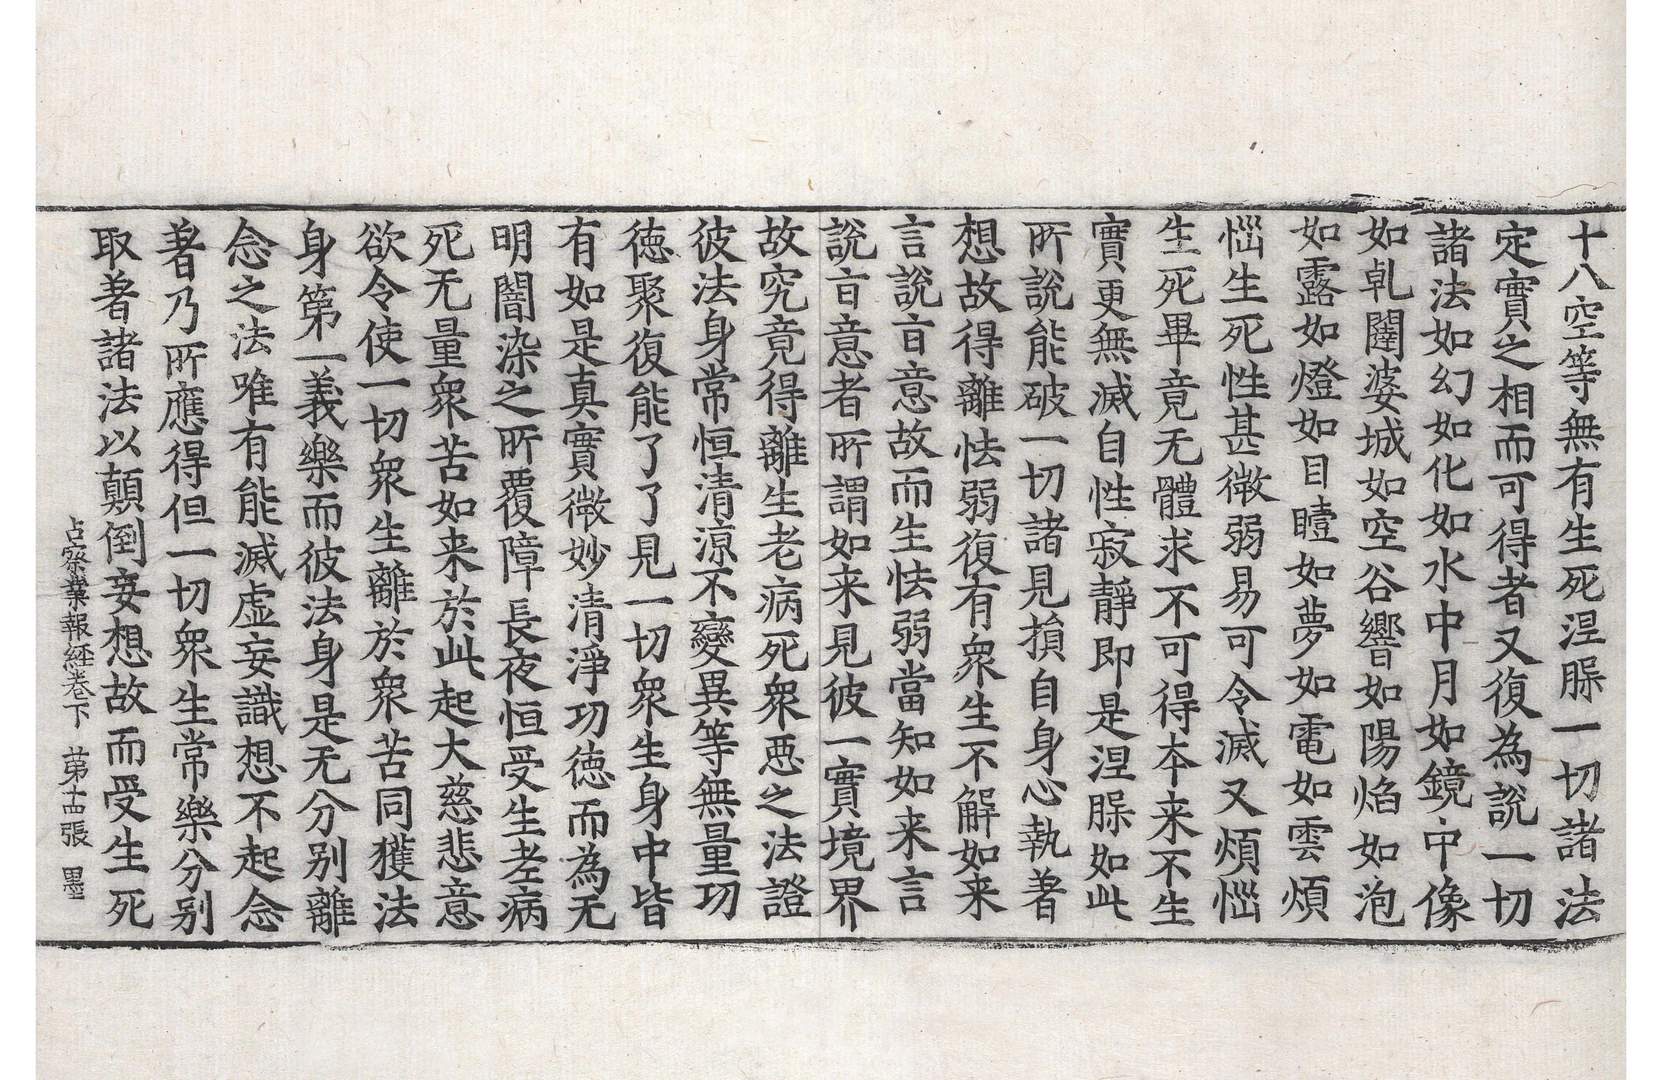 十八空等無有生死涅槃一切諸法
定實之相而可得者又復為說一切
諸法如幻如化如水中月如鏡中像
如乹闥婆城如空谷響如陽焰如泡
如露如燈如目瞖如夢如電如雲煩
惱生死性甚微弱易可令滅又煩惱
生死畢竟无體求不可得本来不生
實更無滅自性寂靜即是涅槃如此
所說能破一切諸見損自身心執著
想故得離怯弱復有衆生不解如来
言說㫖意故而生怯弱當知如来言
說㫖意者所謂如来見彼一實境界
故究竟得離生老病死衆惡之法證
彼法身常恒清涼不變異等無量功
徳聚復能了了見一切衆生身中皆
有如是真實微妙清淨功徳而為无
明闇染之所覆障長夜恒受生老病
死无量衆苦如来於此起大慈悲意
欲令使一切衆生離於衆苦同獲法
身第一義樂而彼法身是无分別離
念之法唯有能滅虛妄識想不起念
著乃所應得但一切衆生常樂分別
取著諸法以顛倒妄想故而受生死
占察業報経卷下　第十四張　墨